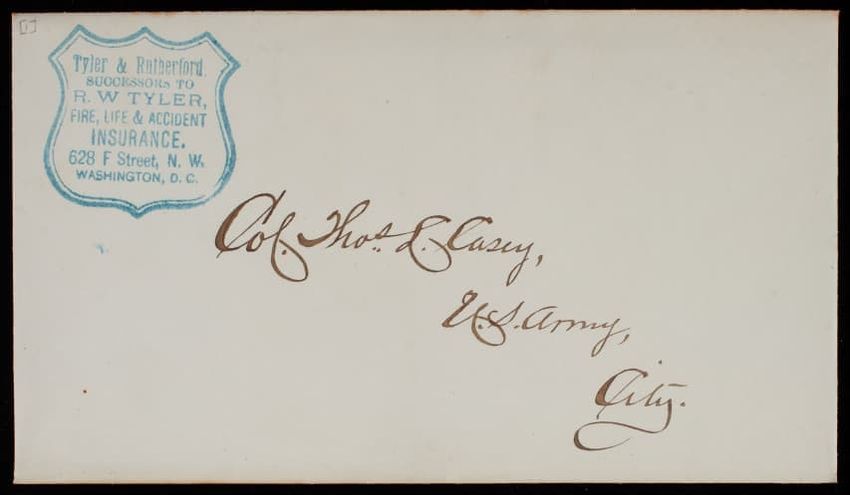 [1]
Tyler & Rutherford,
SUCCESSORS TO
R. W TYLER,
FIRE, LIFE & ACCIDENT
INSURANCE.
628 F Street, N. W.
WASHINGTON, D. C.
Col. Thos. L. Casey,
U.S. Army,
City.